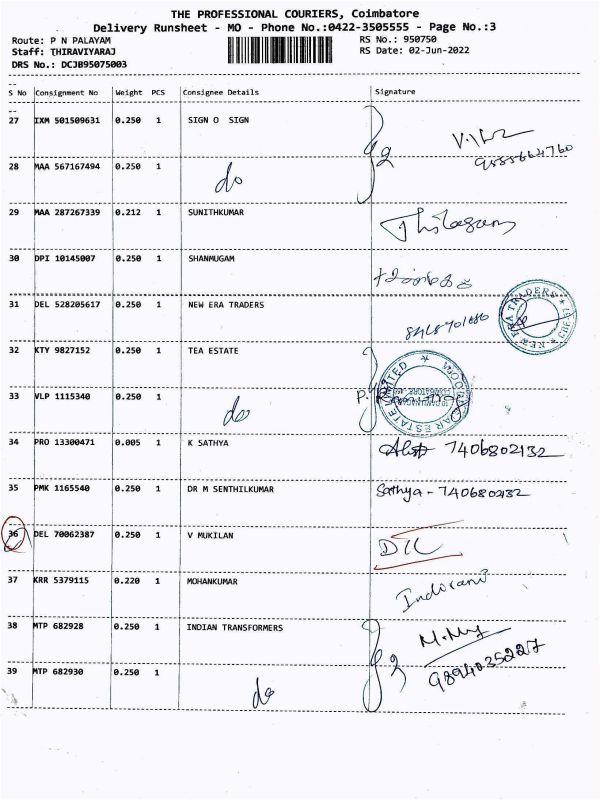 THE PROFESSIONAL COURIERS, Coimbatore
Delivery Runsheet - MO - Phone No.:0422-3505555 - Page No.:3
Route: P N PALAYAM RS No.: 950750
Staff: THIRAVIYARAJ RS Date: 02-Jun-2022
DRS No.: DCJB95075003
S No Consignment No Weight PCS Consignee Details Signature
27 IXM 501509631 0.250 1 SIGN O SIGN
28 MAA 567167494 0.250 1 do
29 MAA 287267339 0.212 1 SUNITHKUMAR Thilagam
30 DPI 10145007 0.250 1 SHANMUGAM
31 DEL 528205617 0.250 1 NEW ERA TRADERS
NEW ERA TRADERS
32 KTY 9827152 0.250 1 TEA ESTATE
33 VLP 1115340 0.250 1 do
34 PRO 13300471 0.005 1 K SATHYA 7406802132
35 PMK 1165540 0.250 1 DR M SENTHILKUMAR Sathya - 7406802132
36 DEL 70062387 0.250 1 V MUKILAN
37 KRR 5379115 0.220 1 MOHANKUMAR Indorani
38 MTP 682928 0.250 1 INDIAN TRANSFORMERS
9894035227
39 MTP 682930 0.250 1 do